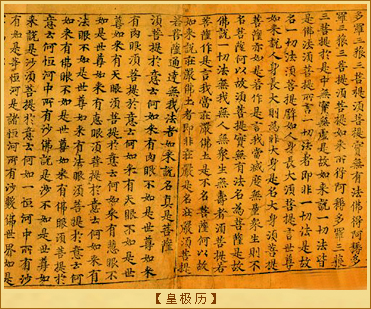 多羅三藐三菩提須菩提實無有法佛得阿耨多
羅三藐三菩提須菩提如來所得阿耨多羅三藐
三菩提於是中無實無虛是故如來說一切法皆
是佛法須菩提所言一切法者即非一切法是故
名一切法須菩提譬如人身長大須菩提言世尊
如來說人身長大則為非大身是名大身須菩提
菩薩亦如是若作是言我當滅度無量衆生則不
名菩薩何以故須菩提實無有法名為菩薩是故
佛說一切法無我無人無衆生無壽者須菩提若
菩薩作是言我當莊嚴佛土是不名菩薩何以故
如來說莊嚴佛土者即非莊嚴是名莊嚴須菩提
若菩薩通達無我法者如來說名真是菩薩
須菩提於意云何如來有肉眼不如是世尊如來
有肉眼須菩提於意云何如來有天眼不如是世
尊如來有天眼須菩提於意云何如來有慧眼不
如是世尊如來有慧眼須菩提於意云何如來有
法眼不如是世尊如來有法眼須菩提於意云何
如來有佛眼不如是世尊如來有佛眼須菩提於
意云何恒河中所有沙佛說是沙不如是世尊如
來說是沙須菩提於意云何如一恒河中所有沙
有如是等恒河是諸恒河所有沙數佛世界如是
【皇极历】